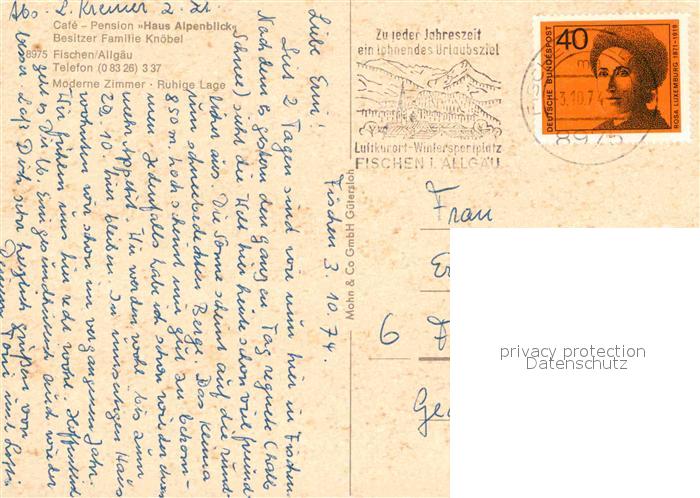 Abs. L. Kremer z. Zt.
Café - Pension »Haus Alpenblick«
Besitzer Familie Knöbel
8975 Fischen/Allgäu
Telefon (0 83 26) 3 37
Moderne Zimmer · Ruhige Lage
Mohn & Co GmbH Gütersloh
Fischen 3.10.74.
Liebe Erni!
Seit 2 Tagen sind wir nun hier in Fischen.
Nachdem es gestern den ganzen Tag regnete (bzw.
Schnee) sieht die Welt hier heute schon viel freund-
licher aus. Die Sonne scheint auf die rund-
um schneebedeckten Berge. Das Klima
850 m hoch scheint mir gut zu bekom-
men. Jedenfalls habe ich schon wieder
mehr Appetit. Wir werden wohl bis zum
20.10. hier bleiben. In unserem Haus
wohnten wir schon im vergangenen Jahr.
Wir fühlen uns hier recht wohl. Hoffentlich
geht es Dir lb. Erni gesundheitlich auch wieder
besser. Laß Dich sehr herzlich grüßen von
Deinen Toni und
Zu jeder Jahreszeit
ein lohnendes Urlaubsziel
Luftkurort-Wintersportplatz
FISCHEN I. ALLGÄU
FISCHEN
3.10.74
8975
40
DEUTSCHE BUNDESPOST
ROSA LUXEMBURG 1871-1919
Frau
6
privacy protection
Datenschutz